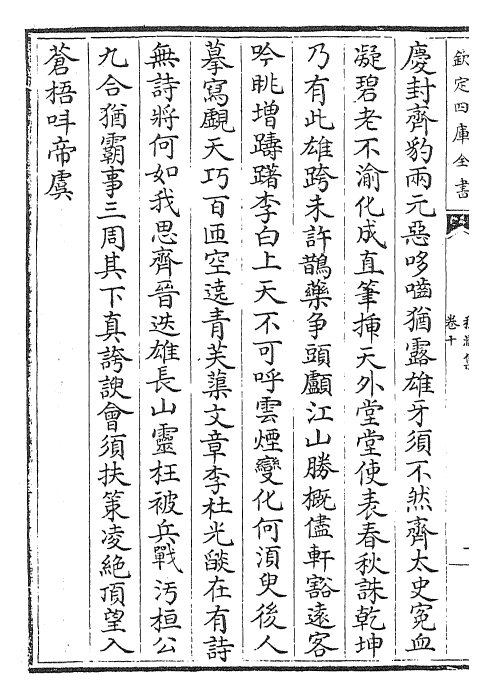 欽定四庫全書
卷十
慶封齊豹兩元惡哆嚙猶露雄牙須不然齊太史冤血
凝碧老不渝化成直筆揷天外堂堂使表春秋誅乾坤
乃有此雄跨未許鵲藥争頭顱江山勝概儘軒豁遠客
吟眺增躊躇李白上天不可呼雲煙變化何湏臾後人
摹寫覷天巧百匝空遶青芙蕖文章李杜光燄在有詩
無詩將何如我思齊晉迭雄長山靈枉被兵戰汚桓公
九合猶霸事三周其下真誇諛會須扶策凌絶頂望入
蒼梧呌帝虞